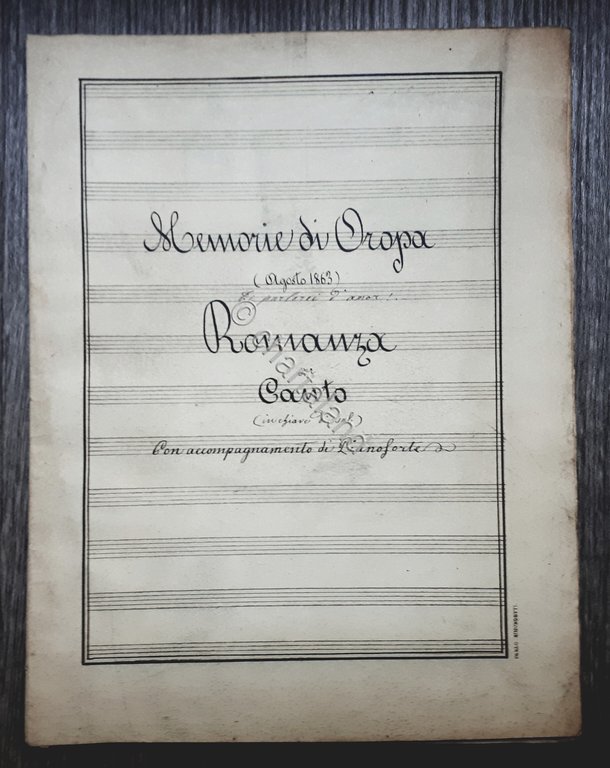 Memorie di Oropa
(Agosto 1863)
parlarei d'amor!..
Romanza
Canto
(in chiave di sol)
Con accompagnamento di Pianoforte